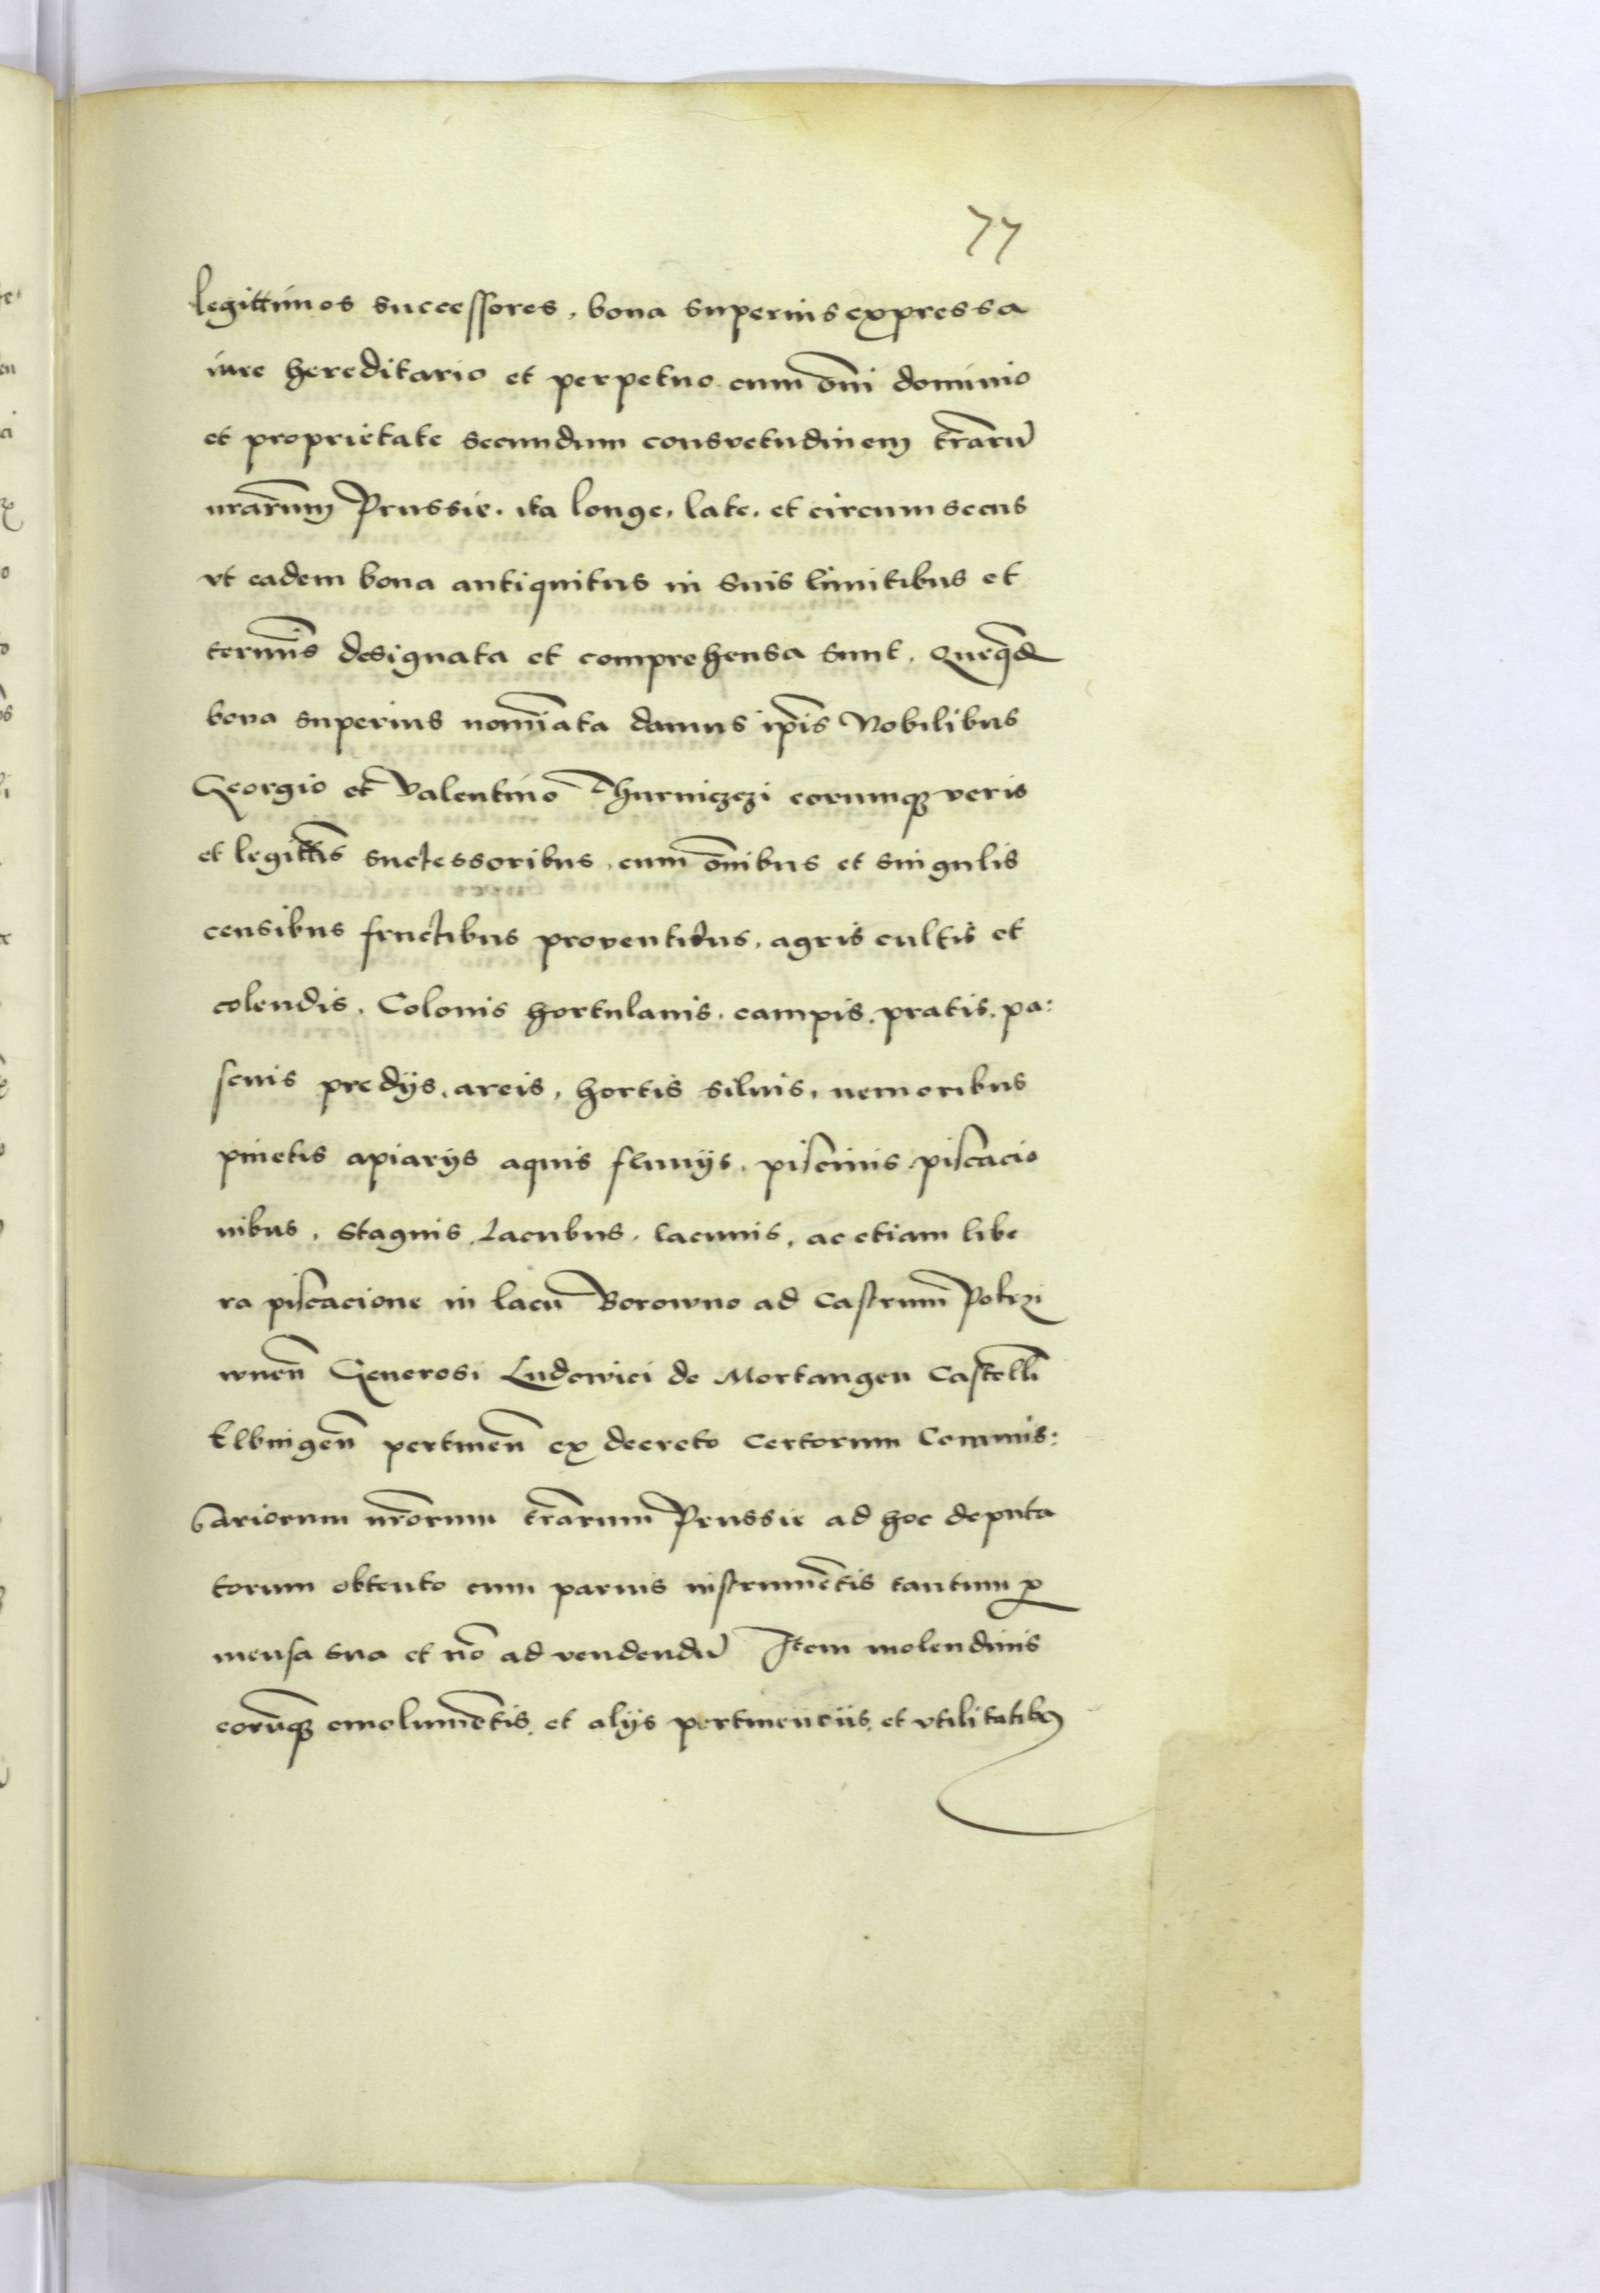 77
legittimos successores, bona superius expressa
iure hereditario et perpetuo cum om̄i dominio
et proprietate secundum consvetudinem tr̄arū
nr̄arum Prussie. ita longe, late, et circumsecus
vt eadem bona antiquitus in suis limitibus et
termi̅s designata et comprehensa sunt. Queq̄d
bona superius nomi̅ata damus ip̄is Nobilibus
Georgio et Valentino Thurniczczi eorumq veris
et legitti̅s successoribus, cum om̄ibus et singulis
censibus fructibus proventibus, agris cultis et
colendis. Colonis hortulanis. campis. pratis. pa:
scuis predijs, areis, hortis siluis, nemoribus
pinetis apiarijs aquis fluuijs, piscinis piscacio
nibus, stagnis, lacubus, lacunis, ac etiam libe
ra piscacione in lacu̅ Borowno ad Castrum Potrzi
wnen̄ Generosi Ludowici de Mortangen Castell̄i
Elbingen̄ pertinen̄ ex decreto certorum Commis:
sariorum nr̄orum tr̄arum Prussie ad hoc deputa
torum obtento cum paruis instrume̅tis tantum p
mensa sua et no̅ ad vendendu̅ Item molendinis
eoru̅q emolume̅tis, et alijs pertinencijs, et vtilitatib9